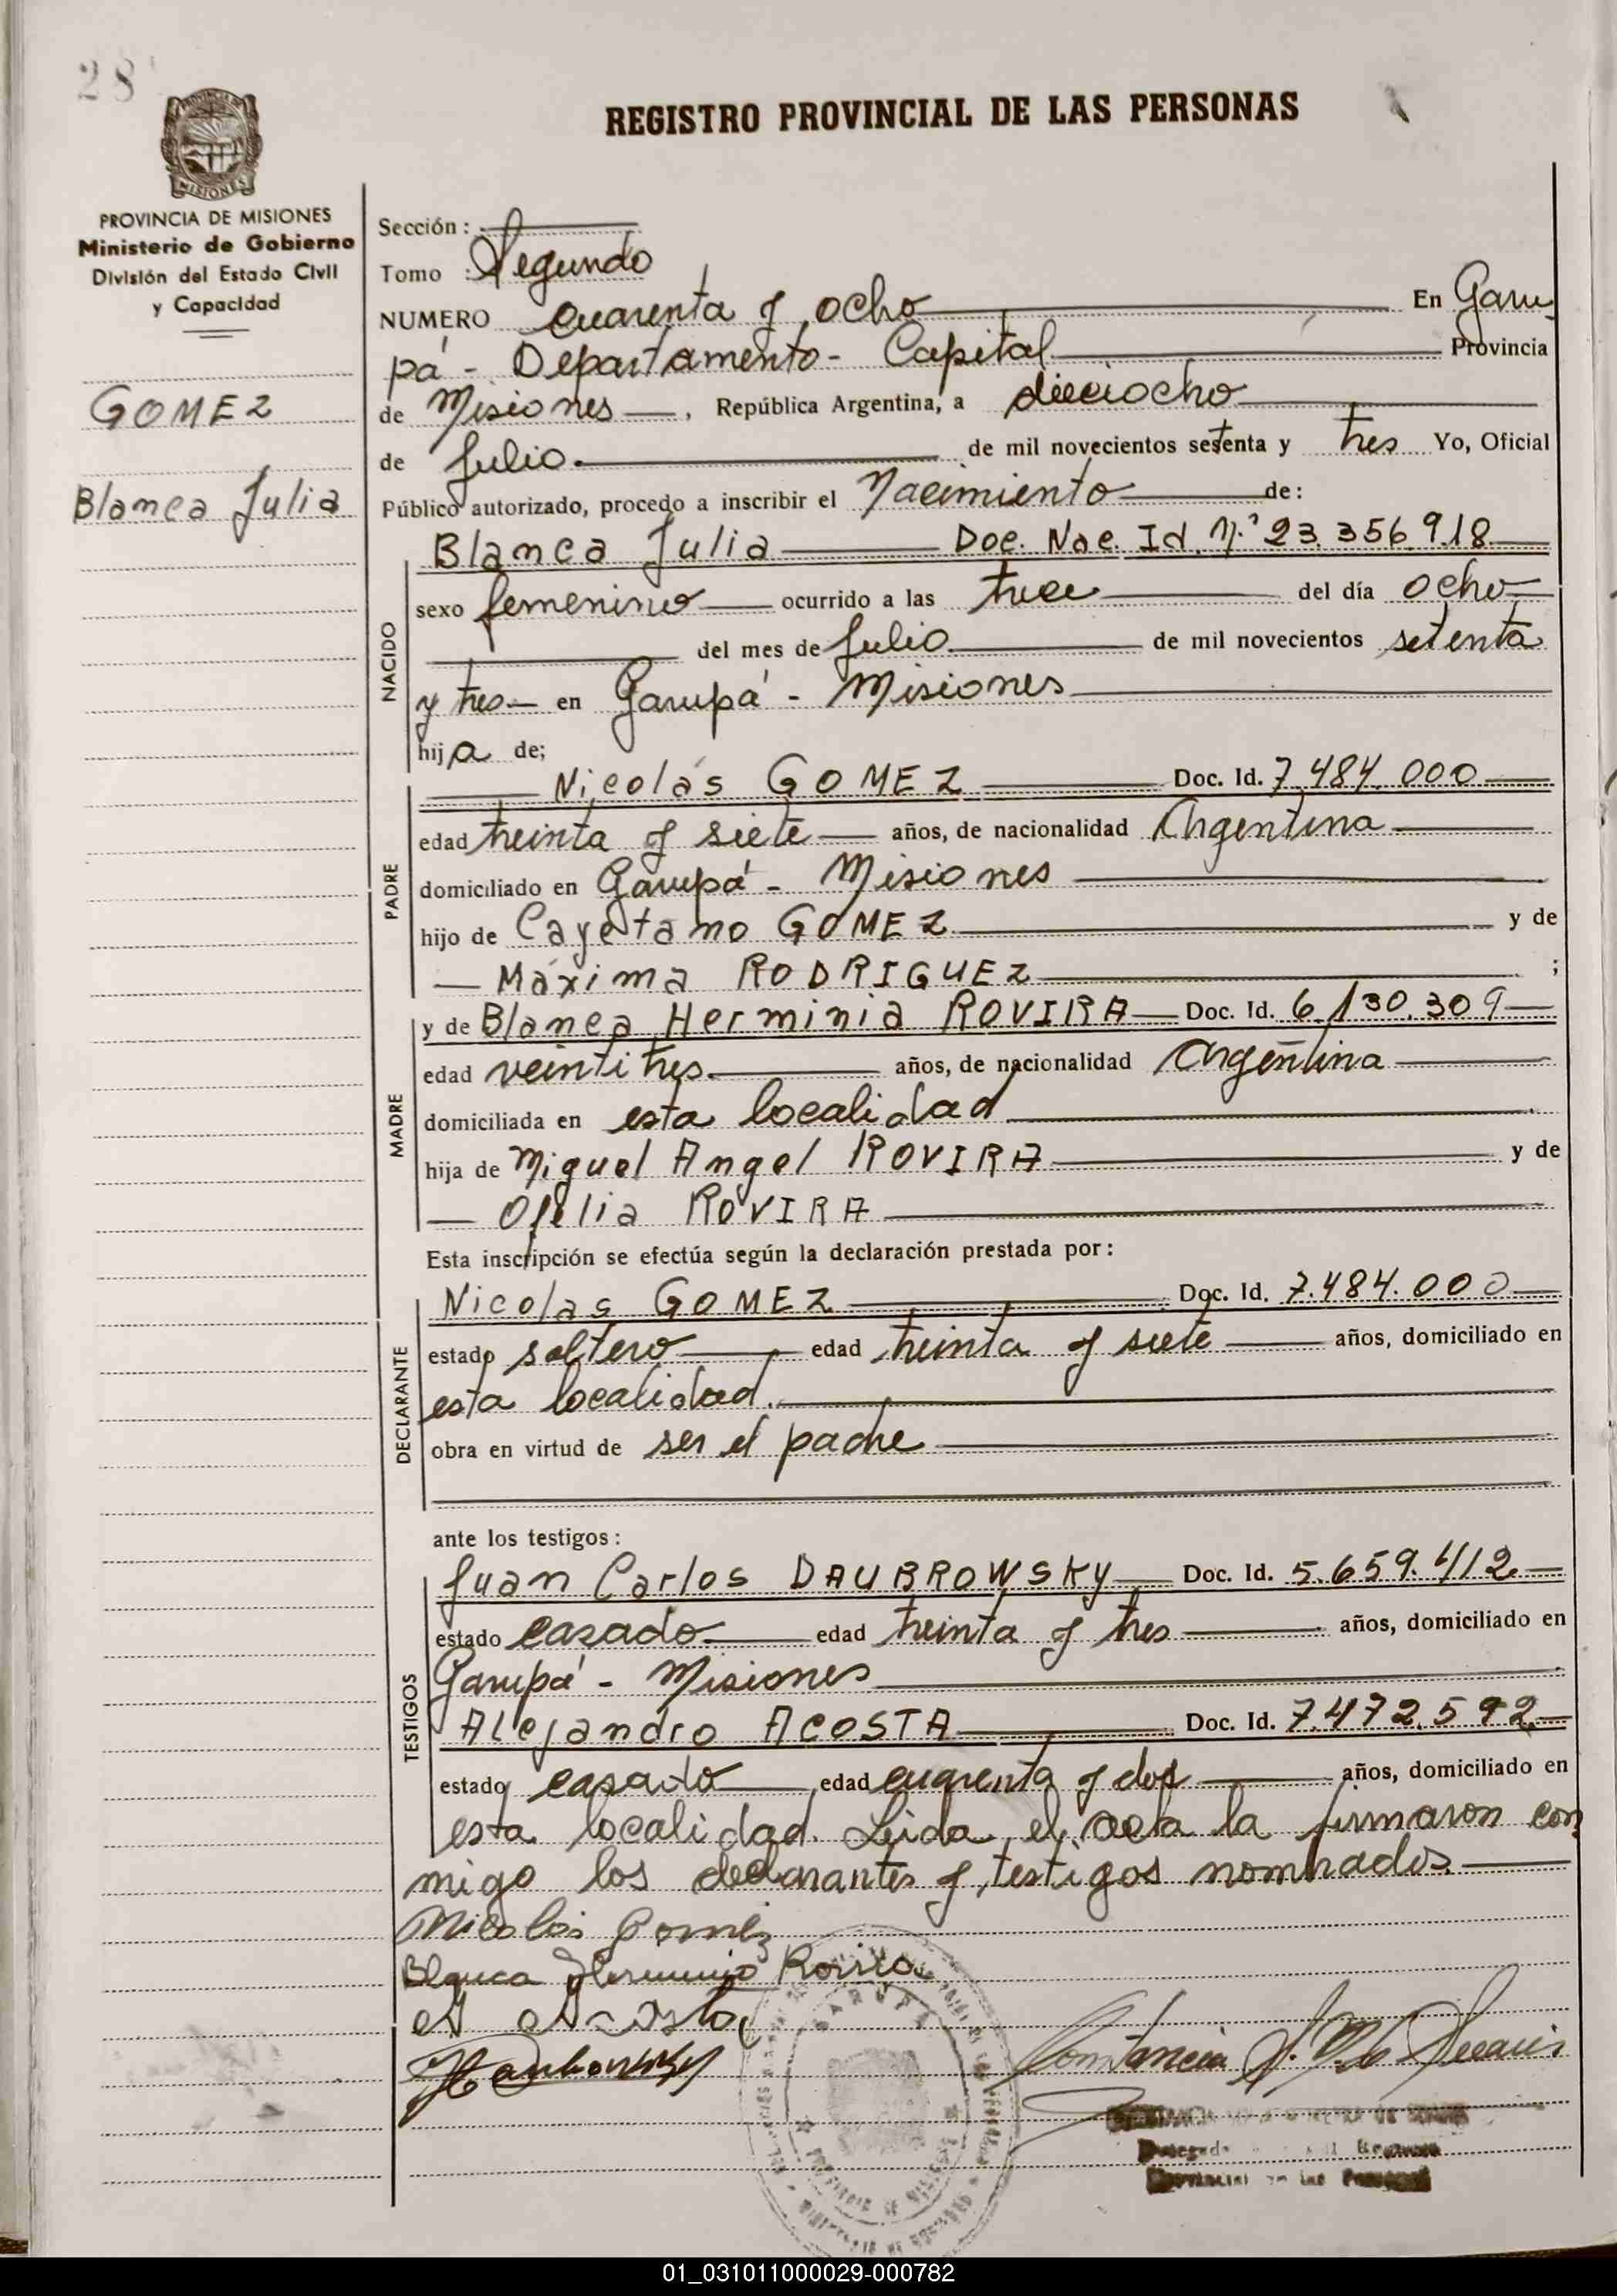 28
REGISTRO PROVINCIAL DE LAS PERSONAS
PROVINCIA DE MISIONES
Ministerio de Gobierno
División del Estado Civil
y Capacidad
GOMEZ
Blanca Julia
Sección :
Tomo : Segundo
NUMERO cuarenta y ocho En Garu-
pá - Departamento - Capital Provincia
de Misiones, República Argentina, a dieciocho
de Julio. de mil novecientos setenta y tres Yo, Oficial
Público autorizado, procedo a inscribir el Nacimiento de:
Blanca Julia Doc. Nac. Id. N.° 23.356.918
NACIDO
sexo femenino ocurrido a las trece del día ocho
del mes de Julio de mil novecientos setenta
y tres en Garupá - Misiones
hija de;
PADRE
Nicolás GOMEZ Doc. Id. 7.484.000
edad treinta y siete años, de nacionalidad Argentina
domiciliado en Garupá - Misiones
hijo de Cayetano GOMEZ y de
Máxima RODRIGUEZ ;
MADRE
y de Blanca Herminia ROVIRA Doc. Id. 6.130.309
edad veintitres. años, de nacionalidad Argentina
domiciliada en esta localidad
hija de Miguel Angel ROVIRA y de
Ofelia ROVIRA
Esta inscripción se efectúa según la declaración prestada por:
DECLARANTE
Nicolas GOMEZ Doc. Id. 7.484.000
estado soltero edad treinta y siete años, domiciliado en
esta localidad.
obra en virtud de ser el padre
ante los testigos:
TESTIGOS
Juan Carlos DAUBROWSKY Doc. Id. 5.659.412
estado casado edad treinta y tres años, domiciliado en
Garupá - Misiones
Alejandro ACOSTA Doc. Id. 7.472.592
estado casado edad cuarenta y dos años, domiciliado en
esta localidad. Leida el acta la firmaron con
migo los declarantes y testigos nombrados.
Nicolás Gomez
Blanca Herminia Rovira
GARUPA
Provincial de las Personas
01_031011000029-000782